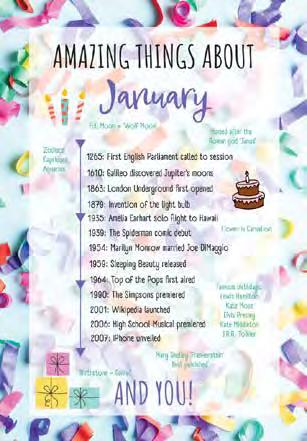 AMAZING THINGS ABOUT
January
Full Moon = 'Wolf Moon'
Named after the
Roman god 'Janus'
Zodiacs:
Capricorn
Aquarius
1265: First English Parliament called to session
1610: Galileo discovered Jupiter's moons
1863: London Underground first opened
1879: Invention of the light bulb
1935: Amelia Earhart solo flight to Hawaii
Flower is Carnation
1939: The Spiderman comic debut
1954: Marilyn Monroe married Joe DiMaggio
1959: Sleeping Beauty released
1964: Top of the Pops first aired
1990: The Simpsons premiered
2001: Wikipedia launched
2006: High School Musical premiered
2007: iPhone unveiled
Famous birthdays:
Lewis Hamilton
Kate Moss
Elvis Presley
Kate Middleton
J.R.R. Tolkien
Mary Shelley 'Frankenstein'
first published
Birthstone = Garnet
AND YOU!